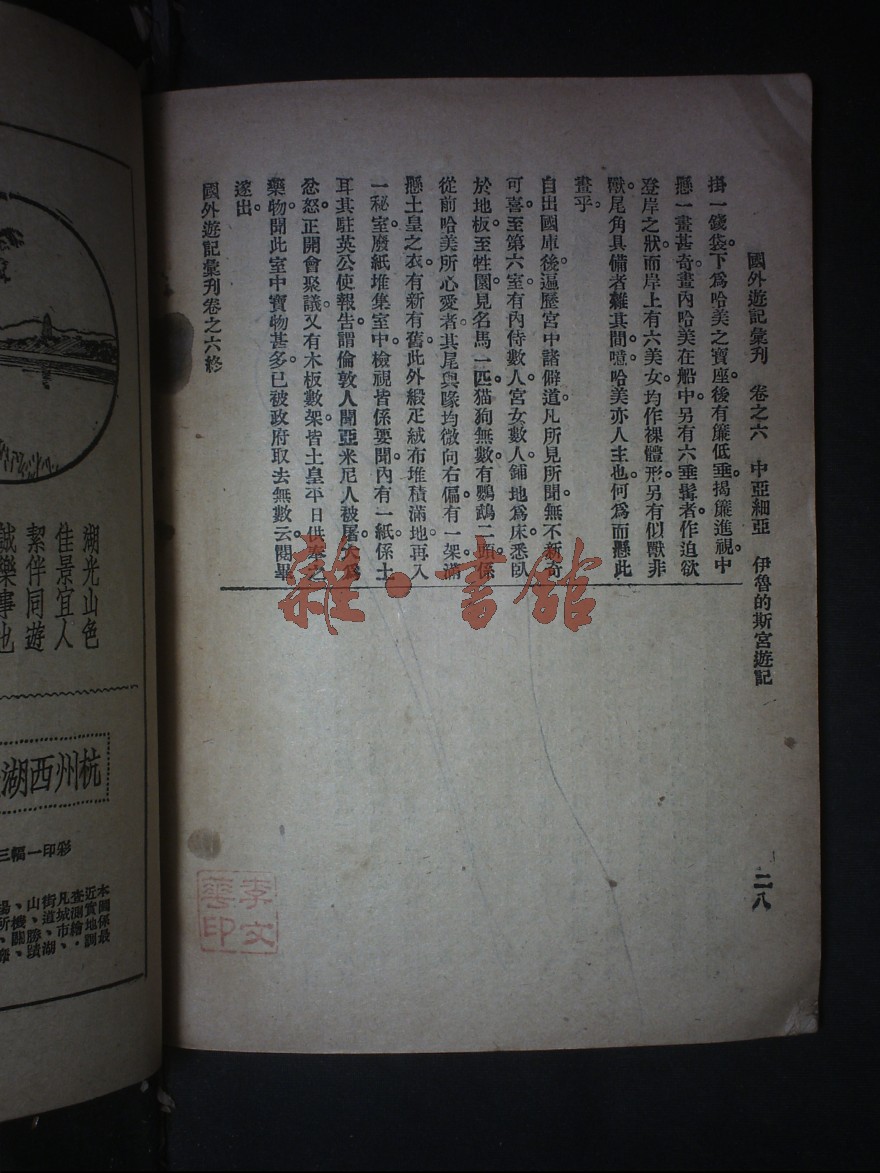 國外遊記彙刊 卷之六 中亞細亞 伊魯的斯宮遊記
二八
掛一錢袋。下爲哈美之寶座。後有簾低垂。揭簾進視。中
懸一畫甚奇。畫內哈美在船中。另有六垂髯者。作迫欲
登岸之狀。而岸上有六美女。均作裸體形。另有似獸非
獸。尾角具備者雜其間。噫。哈美亦人主也。何爲而懸此
畫乎。
自出國庫後。遍歷宮中諸僻道。凡所見所聞。無不新奇
可喜。至第六室。有內侍數人。宮女數人。鋪地爲床。悉臥
於地板。至牲園。見名馬一匹。猫狗無數。有鸚鵡二頭。係
從前哈美所心愛者。其尾與喙均微向右偏。有一架滿
懸土皇之衣。有新有舊。此外緞疋絨布堆積滿地。再入
一秘室。廢紙堆集室中。檢視皆係要聞。內有一紙係土
耳其駐英公使報告。謂倫敦人聞亞米尼人被屠。大爲
忿怒。正開會聚議。又有木板數架。皆土皇平日供奉之
藥物。聞此室中寶物甚多。已被政府取去無數云。閱畢
遂出。
國外遊記彙刊卷之六終
雜·書館
李文
藝印
湖光山色
佳景宜人
絜伴同遊
誠樂事也
杭州西湖
彩印一幅三